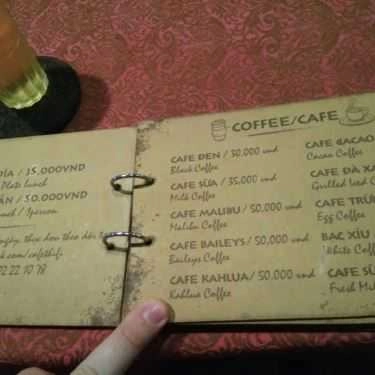 DĨA / 35,000VND
Plate lunch
ẦN / 50.000VND
unch / 1person
ngày, theo dõi theo
k.com/cafethif.
22 22 10 78
COFFEE/CAFE
CAFE ĐEN / 30,000 vnd
Black Coffee
CAFE SỮA / 35,000 vnd
Milk Coffee
CAFE MALIBU / 50,000 vnd
Malibu Coffee
CAFE BAILEYS / 50,000 vnd
Baileys Coffee
CAFE KAHLUA / 50,000 vnd
Kahlua Coffee
CAFE CACAO
Cacao Coffee
CAFE ĐÁ XA
Grilled Iced C
CAFE TRỨN
Egg Coffee
BẠC XỈU
White Coffee
CAFE SỮ
Fresh Mil